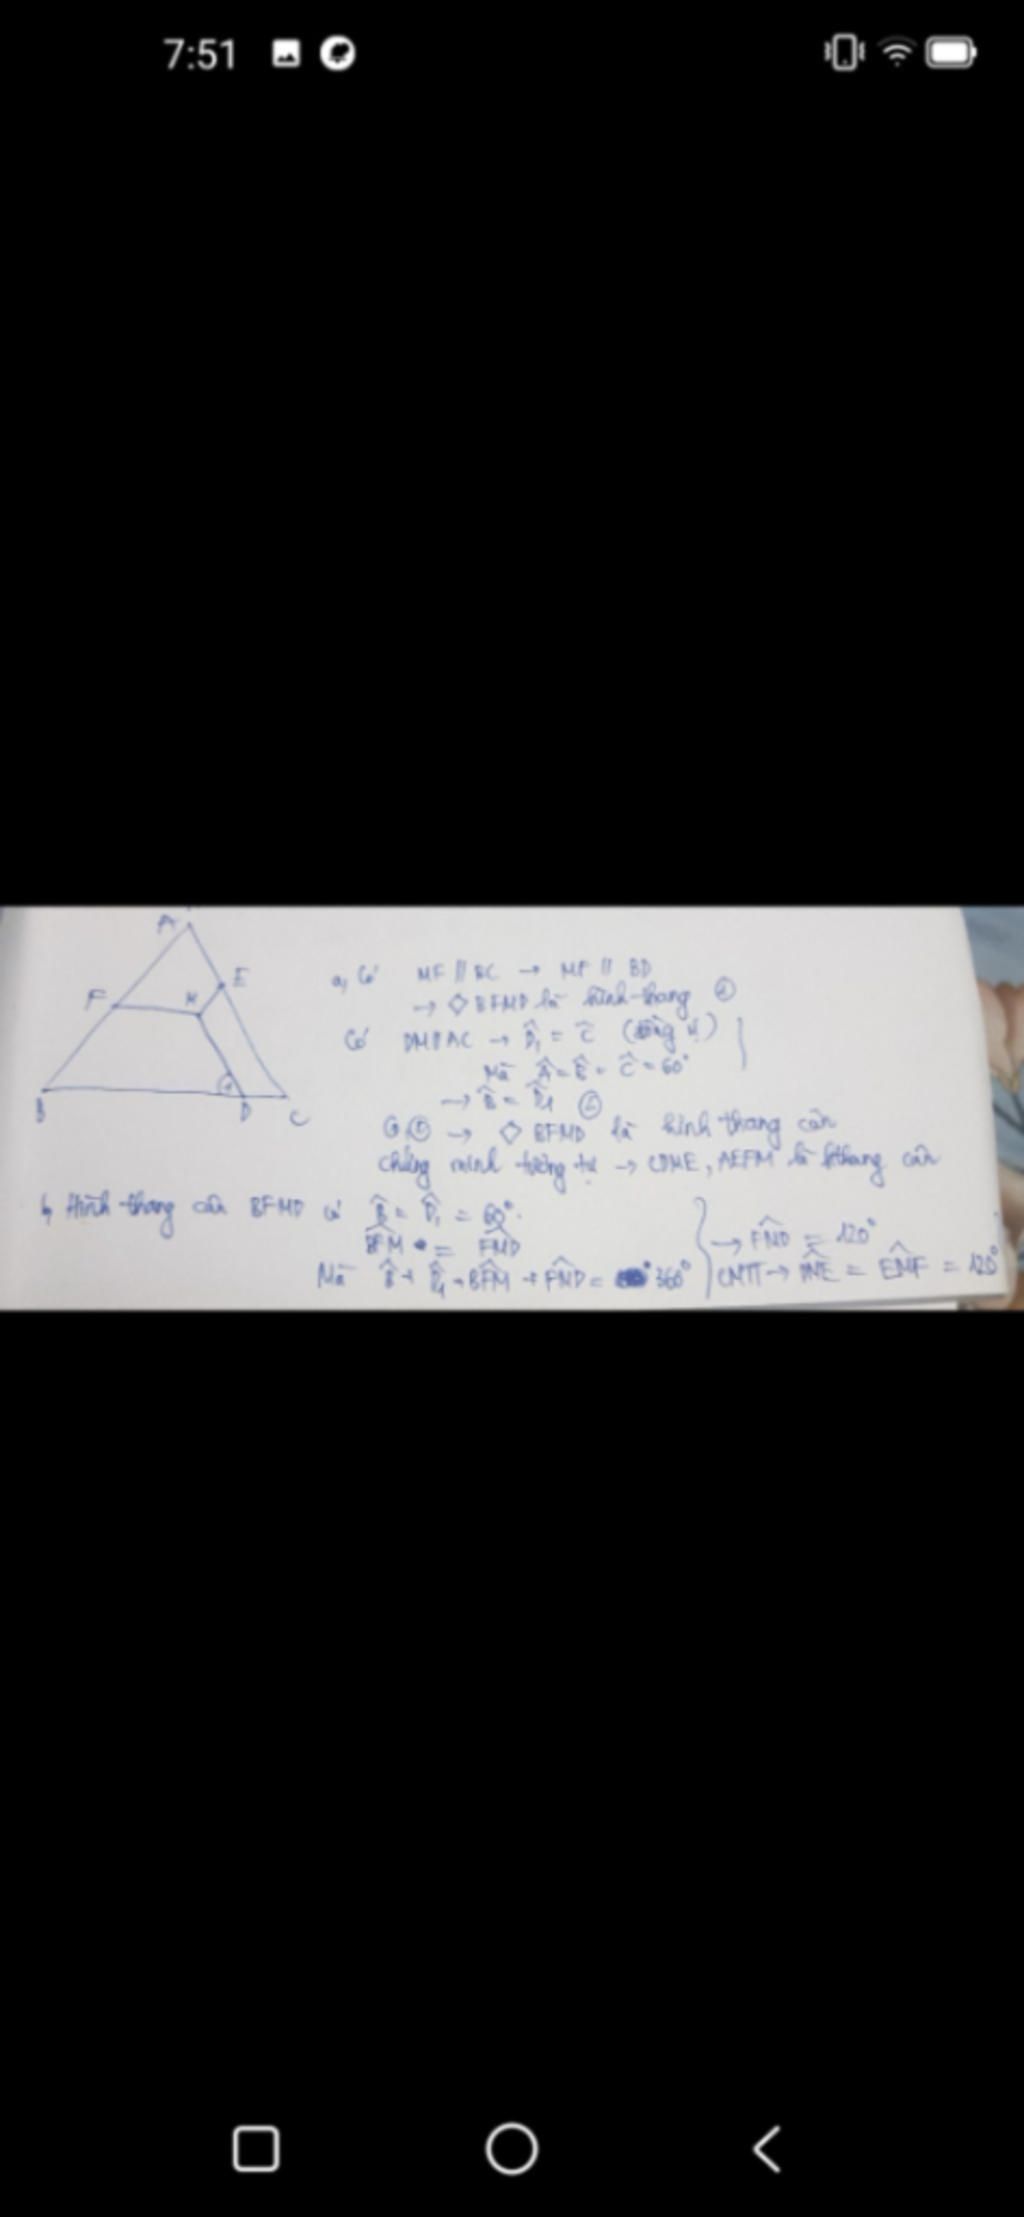 7:51
A
E
F
M
B
1
D
C
a, Có MF // BC → MF // BD
→ ◇ BFMD là hình thang ①
Có DM // AC → D̂₁ = Ĉ (đồng vị)
Mà Â = B̂ = Ĉ = 60°
→ B̂ = D̂₁ ②
→ ◇ BFMD là hình thang cân
chứng minh tương tự → CDME, AEFM là hthang cân
b, Hình thang cân BFMD có B̂ = D̂₁ = 60°.
BFM = FMD
Mà B̂ + D̂₁ + BFM + FMD = 360°
→ FMD = 120°
CMTT → DME = EMF = 120°